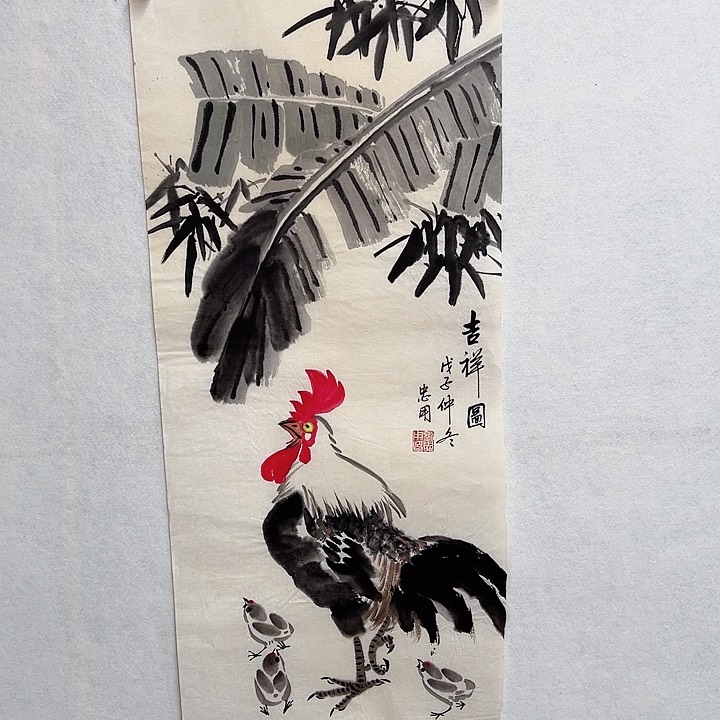 吉祥圖
戊子仲冬
忠用